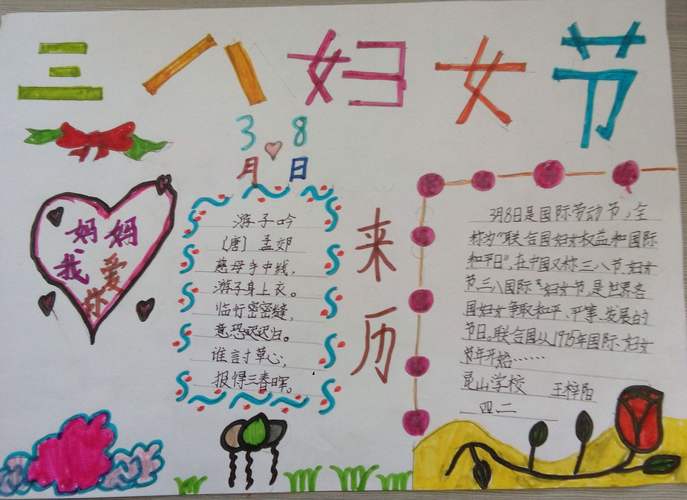 三八妇女节
3月8日
妈妈
我爱你
游子吟
(唐) 孟郊
慈母手中线,
游子身上衣。
临行密密缝,
意恐迟迟归。
谁言寸草心,
报得三春晖。
来历
3月8日是国际劳动节,全
称为“联合国妇女权益和国际
和平日”,在中国又称三八节、妇女
节、三八国际妇女节,是世界各
国妇女争取和平、平等、发展的
节日。联合国从1975年国际妇女
年开始……
昆山学校 王梓阳
四二